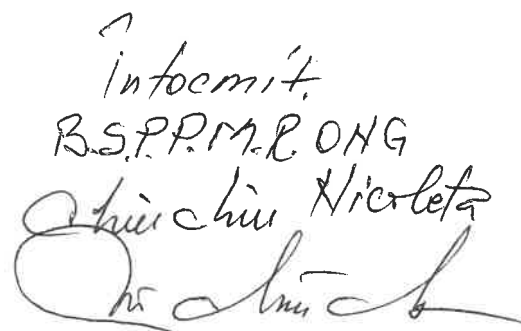 Întocmit.
B.S.P.P.M.R. ONG
Chiu chiu Nicoleta